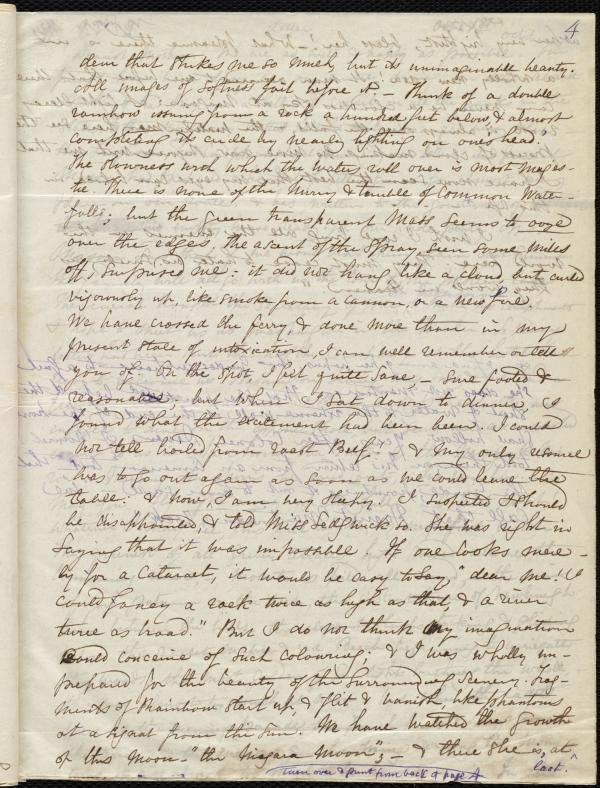 4
dear that strikes me so much, but its unimaginable beauty.
All images of softness fail before it! – Think of a double
rainbow issuing from a rock a hundred feet below, & almost
completing its circle by nearly lighting on one's head.
The slowness with which the water rolls over is most majes-
tic. There is none of the hurry & tumble of common Water-
falls; but the green transparent mass seems to ooze
over the edges. The ascent of the spray, seen some miles
off, surprised me: it did not hang like a cloud but curled
vigorously up, like smoke from a cannon, or a new fire.
We have crossed the ferry, & done more than in my
present state of intoxication, I can well remember or tell
you of. On the spot, I felt quite sane – sure footed &
reasonable; but when I sat down to dinner I
found what the excitement had been. I could
not tell boiled from roast Beef: & my only resource
was to go out again as soon as we could leave the
table: & now, I am very sleepy. I suspected I should
be disappointed, & told Miss Sedgwick so. She was right in
saying that it was impossible. If one looks mere-
ly for a Cataract, it would be easy to say "dear me! I
could fancy a rock twice as high as that, & a river
twice as broad." But I do not think my imagination
could conceive of such colouring; & I was wholly un-
prepared for the beauty of the surrounding scenery. Frag-
ments of Rainbow start up, & flit & vanish, like phantoms
at a signal from the Sun. We have watched the growth
of this Moon – "the Niagara Moon"; – & there she is, at
last.
turn over & print from back of page A